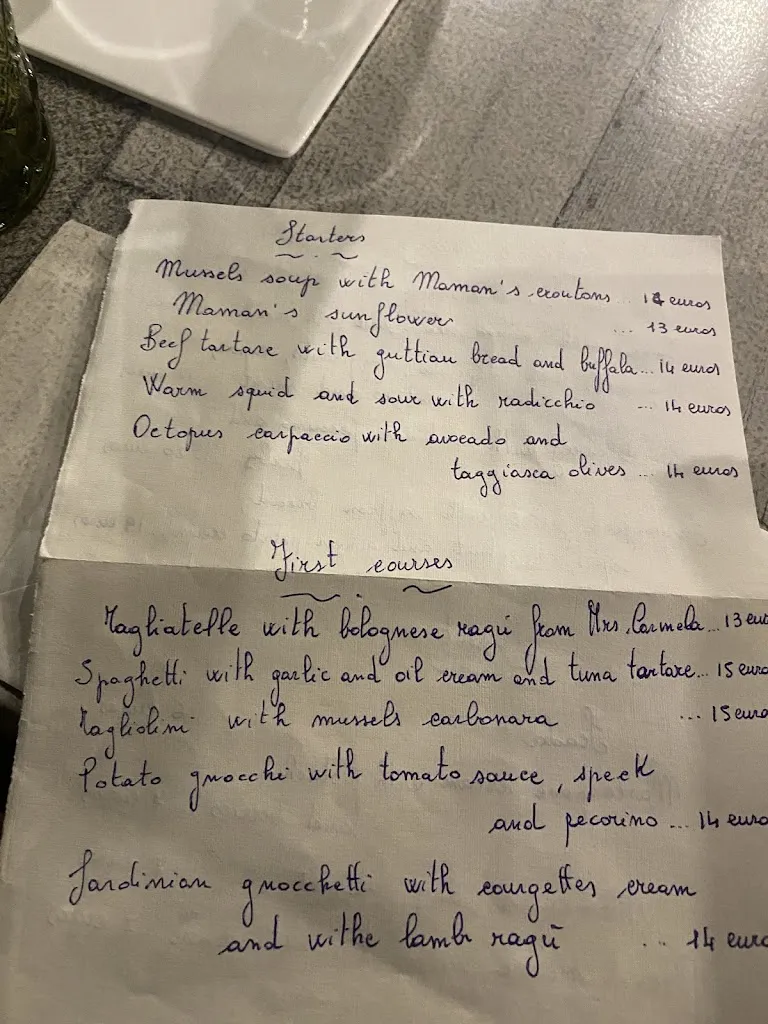 Starters
Mussels soup with Maman's croutons ... 14 euros
Maman's sunflower ... 13 euros
Beef tartare with guttiau bread and buffala... 14 euros
Warm squid and sour with radicchio ... 14 euros
Octopus carpaccio with avocado and
taggiasca olives ... 14 euros
First courses
Tagliatelle with bolognese ragú from Mrs. Carmela... 13 euro
Spaghetti with garlic and oil cream and tuna tartare... 15 euro
Tagliolini with mussels carbonara ... 15 euro
Potato gnocchi with tomato sauce, speek
and pecorino ... 14 euro
Sardinian gnocchetti with courgettes cream
and withe lamb ragū ... 14 euro